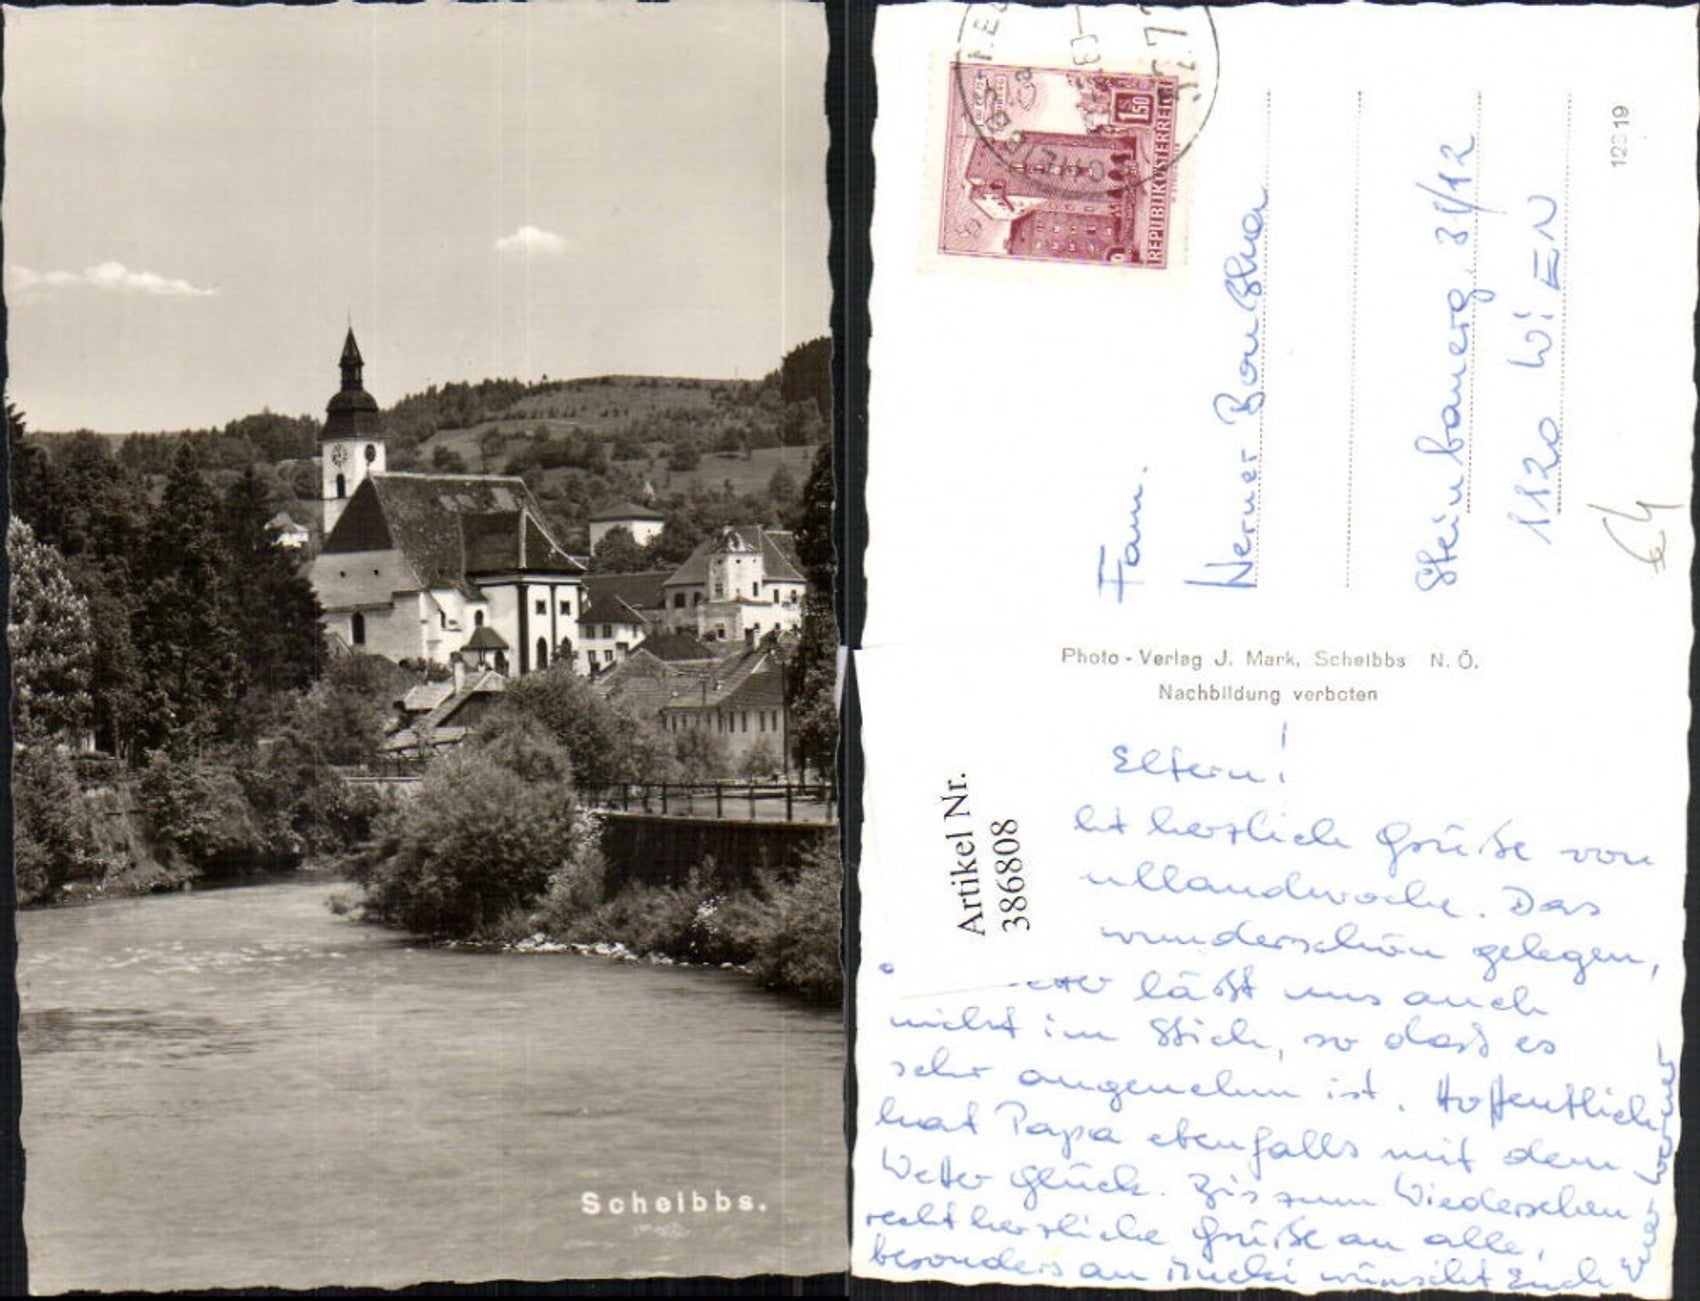 Scheibbs.
REPUBLIK ÖSTERREICH
S 1.50
SCHEIBBS
Fam.
Werner
Steinbauerg. 31/12
1120 WIEN
Photo-Verlag J. Mark, Scheibbs N. Ö.
Nachbildung verboten
Artikel Nr.
386808
Eltern!
herzliche Grüße von
Das
wunderschön gelegen,
läßt uns auch
nicht im Stich, so daß es
sehr angenehm ist. Hoffentlich
hat Papa ebenfalls mit dem
Wetter Glück. Bis zum Wiedersehen
recht herzliche Grüße an alle,
besonders an wünscht Euch
Euer Werner